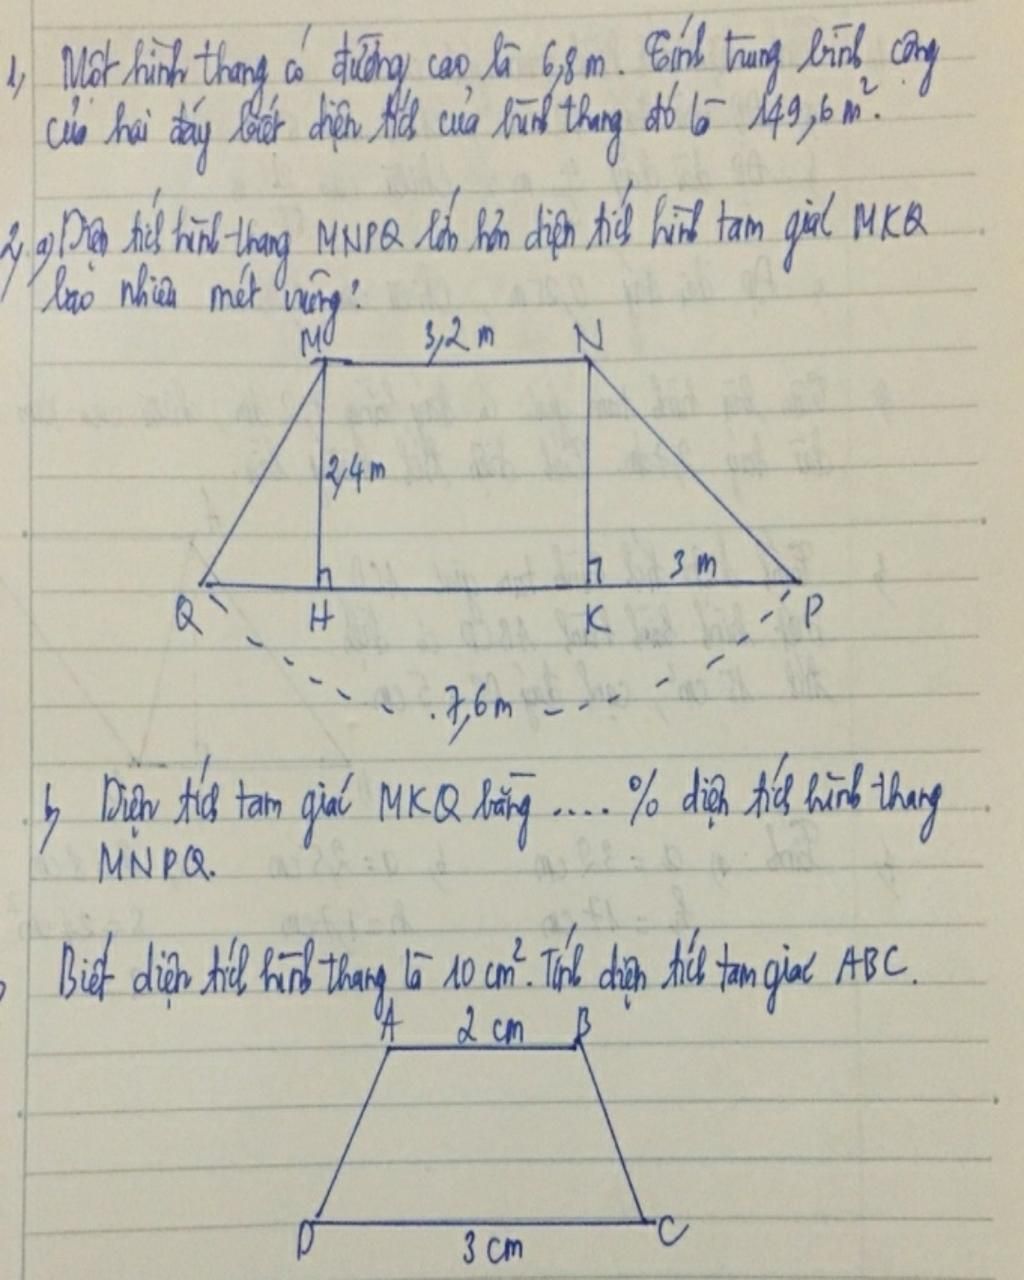 1, Một hình thang có đường cao là 6,8 m. Tính trung bình cộng
của hai đáy biết diện tích của hình thang đó là 149,6 m².
2, a) Diện tích hình thang MNPQ lớn hơn diện tích hình tam giác MKQ
bao nhiêu mét vuông?
M 3,2 m N
2,4 m
3 m
Q H K P
7,6 m
b, Diện tích tam giác MKQ bằng .... % diện tích hình thang
MNPQ.
Biết diện tích hình thang là 10 cm². Tính diện tích tam giác ABC.
A 2 cm B
D 3 cm C